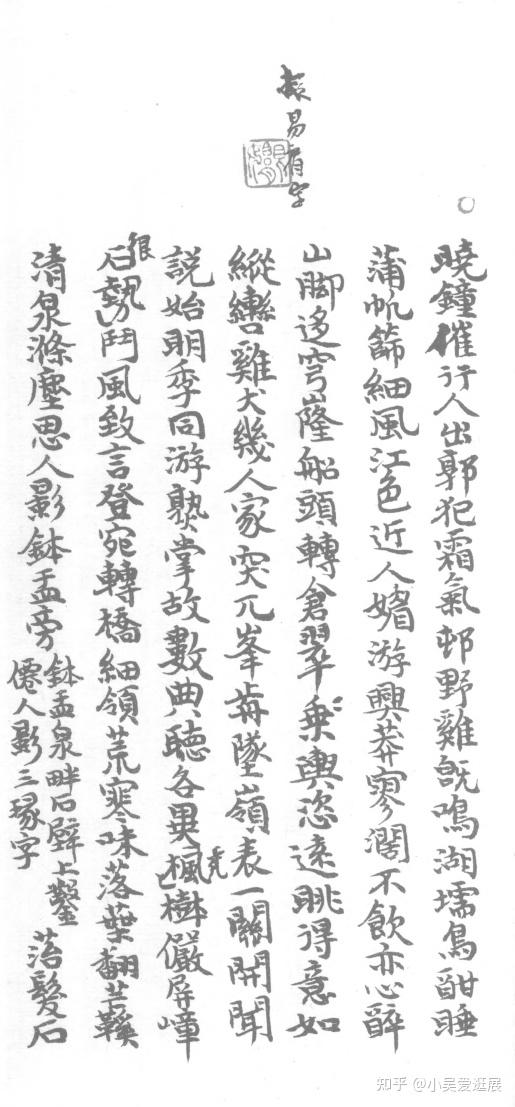 易 字
曉鐘催行人出郭犯霜氣邨野雞既鳴湖壖鳥酣睡
蒲帆篩細風江色近人媚游興莽寥濶不飲亦心醉
山腳迻穹嶐船頭轉倉翠乘輿恣遠眺得意如
縱轡雞犬幾人家突兀峯墜嶺表一關開聞
說始明季同游孰掌故數典聽各異楓樹儼屏嶂
很
石勢鬥風致言登宛轉橋細領荒寒味落葉翻芒鞵
清泉滌塵思人影鉢盂旁
鉢盂泉畔石壁上鑿
僊人影三篆字
落髮石
知乎 @小吴爱逛展